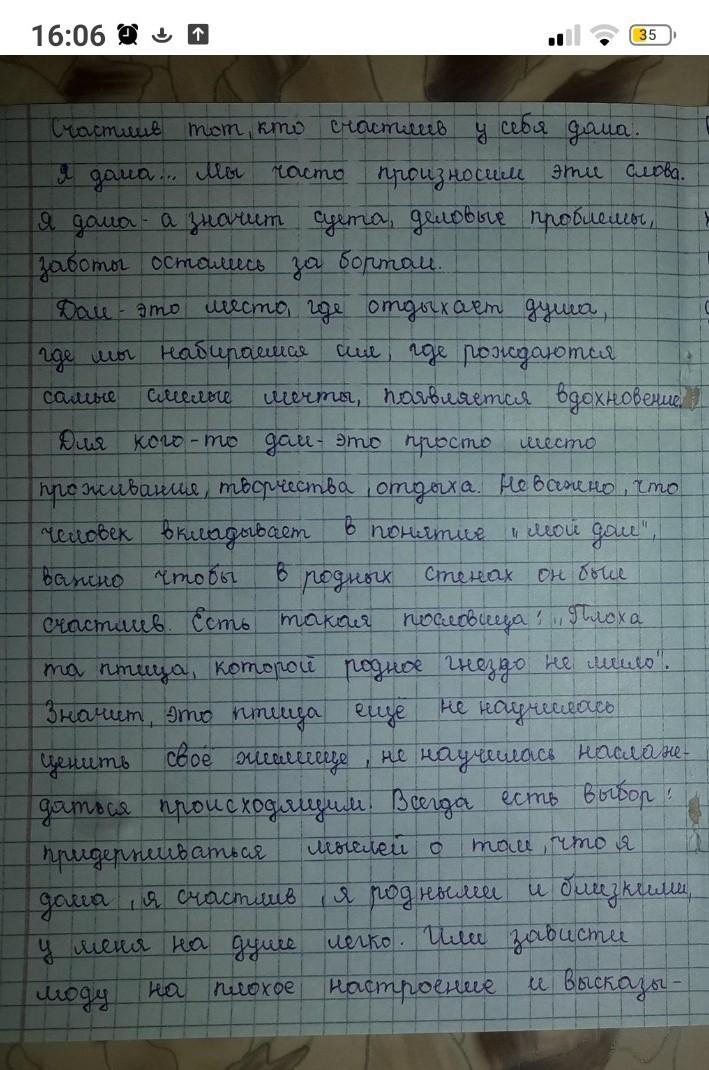 16:06
35
Счастлив тот, кто счастлив у себя дома.
Я дома... Мы часто произносим эти слова.
Я дома - а значит суета, деловые проблемы,
заботы остались за бортом.
Дом - это место, где отдыхает душа,
где мы набираемся сил, где рождаются
самые смелые мечты, появляется вдохновение.
Для кого-то дом - это просто место
проживания, творчества, отдыха. Неважно, что
человек вкладывает в понятие „мой дом",
важно чтобы в родных стенах он был
счастлив. Есть такая пословица: „Плоха
та птица, которой родное гнездо не мило".
Значит, это птица ещё не научилась
ценить своё жилище, не научилась наслаж-
даться происходящим. Всегда есть выбор:
придерживаться мыслей о том, что я
дома, я счастлив, я родными и близкими,
у меня на душе легко. Или завести
моду на плохое настроение и высказы-